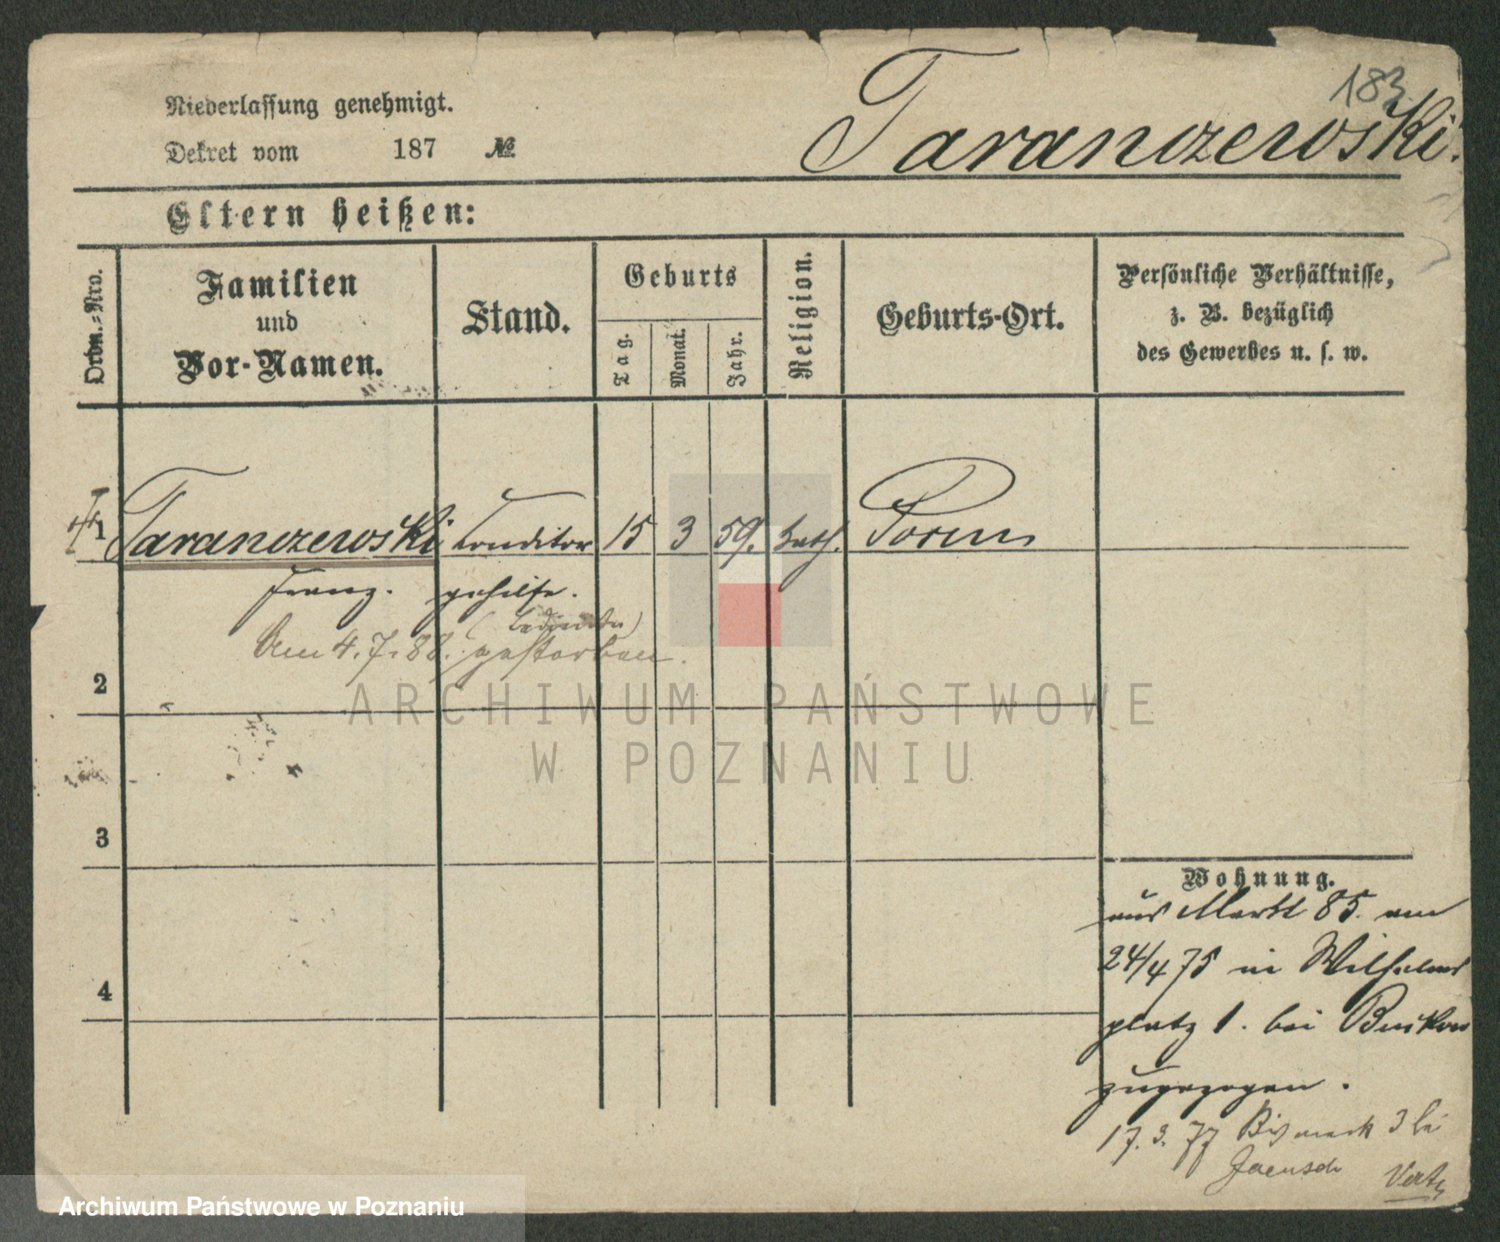 183
Niederlassung genehmigt.
Taranczewski.
Dekret vom 187 №
Eltern heißen:
Ordn.-Nro.
Familien
und
Vor-Namen.
Stand.
Geburts
Tag.
Monat.
Jahr.
Religion.
Geburts-Ort.
Persönliche Verhältnisse,
z. B. bezüglich
des Gewerbes u. s. w.
1 Taranczewski Conditor 15 3 59. kath. Posen
Franz. gehilfe.
Am 4.7.88. gestorben.
2
ARCHIWUM PAŃSTWOWE
W POZNANIU
3
Wohnung.
aus Markt 85. am
24/4 75 in Wilhelms
4
platz 1. bei
zugezogen.
17.3.77 Bismark 3 bei
Jaensch
Archiwum Państwowe w Poznaniu